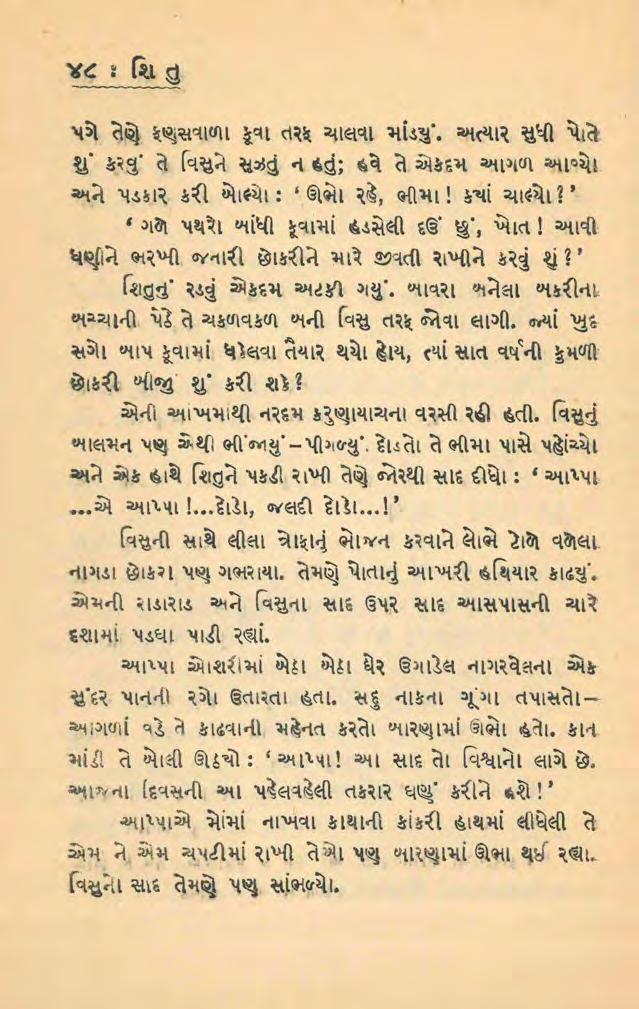 ૪૮ : શિ તુ
પગે તેણે ફણસવાળા કૂવા તરફ ચાલવા માંડયું. અત્યાર સુધી પોતે
શું કરવું તે વિસુને સૂઝતું ન હતું; હવે તે એકદમ આગળ આવ્યો
અને પડકાર કરી બોલ્યો : ‘ ઊભો રહે, ભીમા ! ક્યાં ચાલ્યો ? ’
‘ ગળે પથરો બાંધી કૂવામાં હડસેલી દઉં છું, ખોત ! આવી
ધણીને ભરખી જનારી છોકરીને મારે જીવતી રાખીને કરવું શું ? ’
શિતુનું રડવું એકદમ અટકી ગયું. બાવરા બનેલા બકરીના
બચ્ચાની પેઠે તે ચકળવકળ બની વિસુ તરફ જોવા લાગી. જ્યાં ખુદ
સગો બાપ કૂવામાં ધકેલવા તૈયાર થયો હોય, ત્યાં સાત વર્ષની કુમળી
છોકરી બીજું શું કરી શકે ?
એની આંખમાંથી નરદમ કરુણાયાચના વરસી રહી હતી. વિસુનું
બાલમન પણ એથી ભીંજાયું – પીગળ્યું. દોડતો તે ભીમા પાસે પહોંચ્યો
અને એક હાથે શિતુને પકડી રાખી તેણે જોરથી સાદ દીધો : ‘ આપ્પા
...એ આપ્પા !...દોડો, જલદી દોડો...! ’
વિસુની સાથે લીલા ત્રોફાનું ભોજન કરવાને લોભે ટોળે વળેલા
નાગડા છોકરા પણ ગભરાયા. તેમણે પોતાનું આખરી હથિયાર કાઢયું.
એમની રાડારાડ અને વિસુના સાદ ઉપર સાદ આસપાસની ચારે
દશામાં પડઘા પાડી રહ્યાં.
આપ્પા ઓશરીમાં બેઠા બેઠા ઘેર ઉગાડેલ નાગરવેલના એક
સુંદર પાનની રગો ઉતારતા હતા. સદુ નાકના ગૂંગા તપાસતો –
આગળાં વડે તે કાઢવાની મહેનત કરતો બારણામાં ઊભો હતો. કાન
માંડી તે બોલી ઊઠયો : ‘ આપ્પા ! આ સાદ તો વિશ્વાનો લાગે છે.
આજના દિવસની આ પહેલવહેલી તકરાર ઘણું કરીને હશે ! ’
આપ્પાએ મોંમાં નાખવા કાથાની કાંકરી હાથમાં લીધેલી તે
એમ ને એમ ચપટીમાં રાખી તેઓ પણ બારણામાં ઊભા થઈ રહ્યા.
વિસુનો સાદ તેમણે પણ સાંભળ્યો.